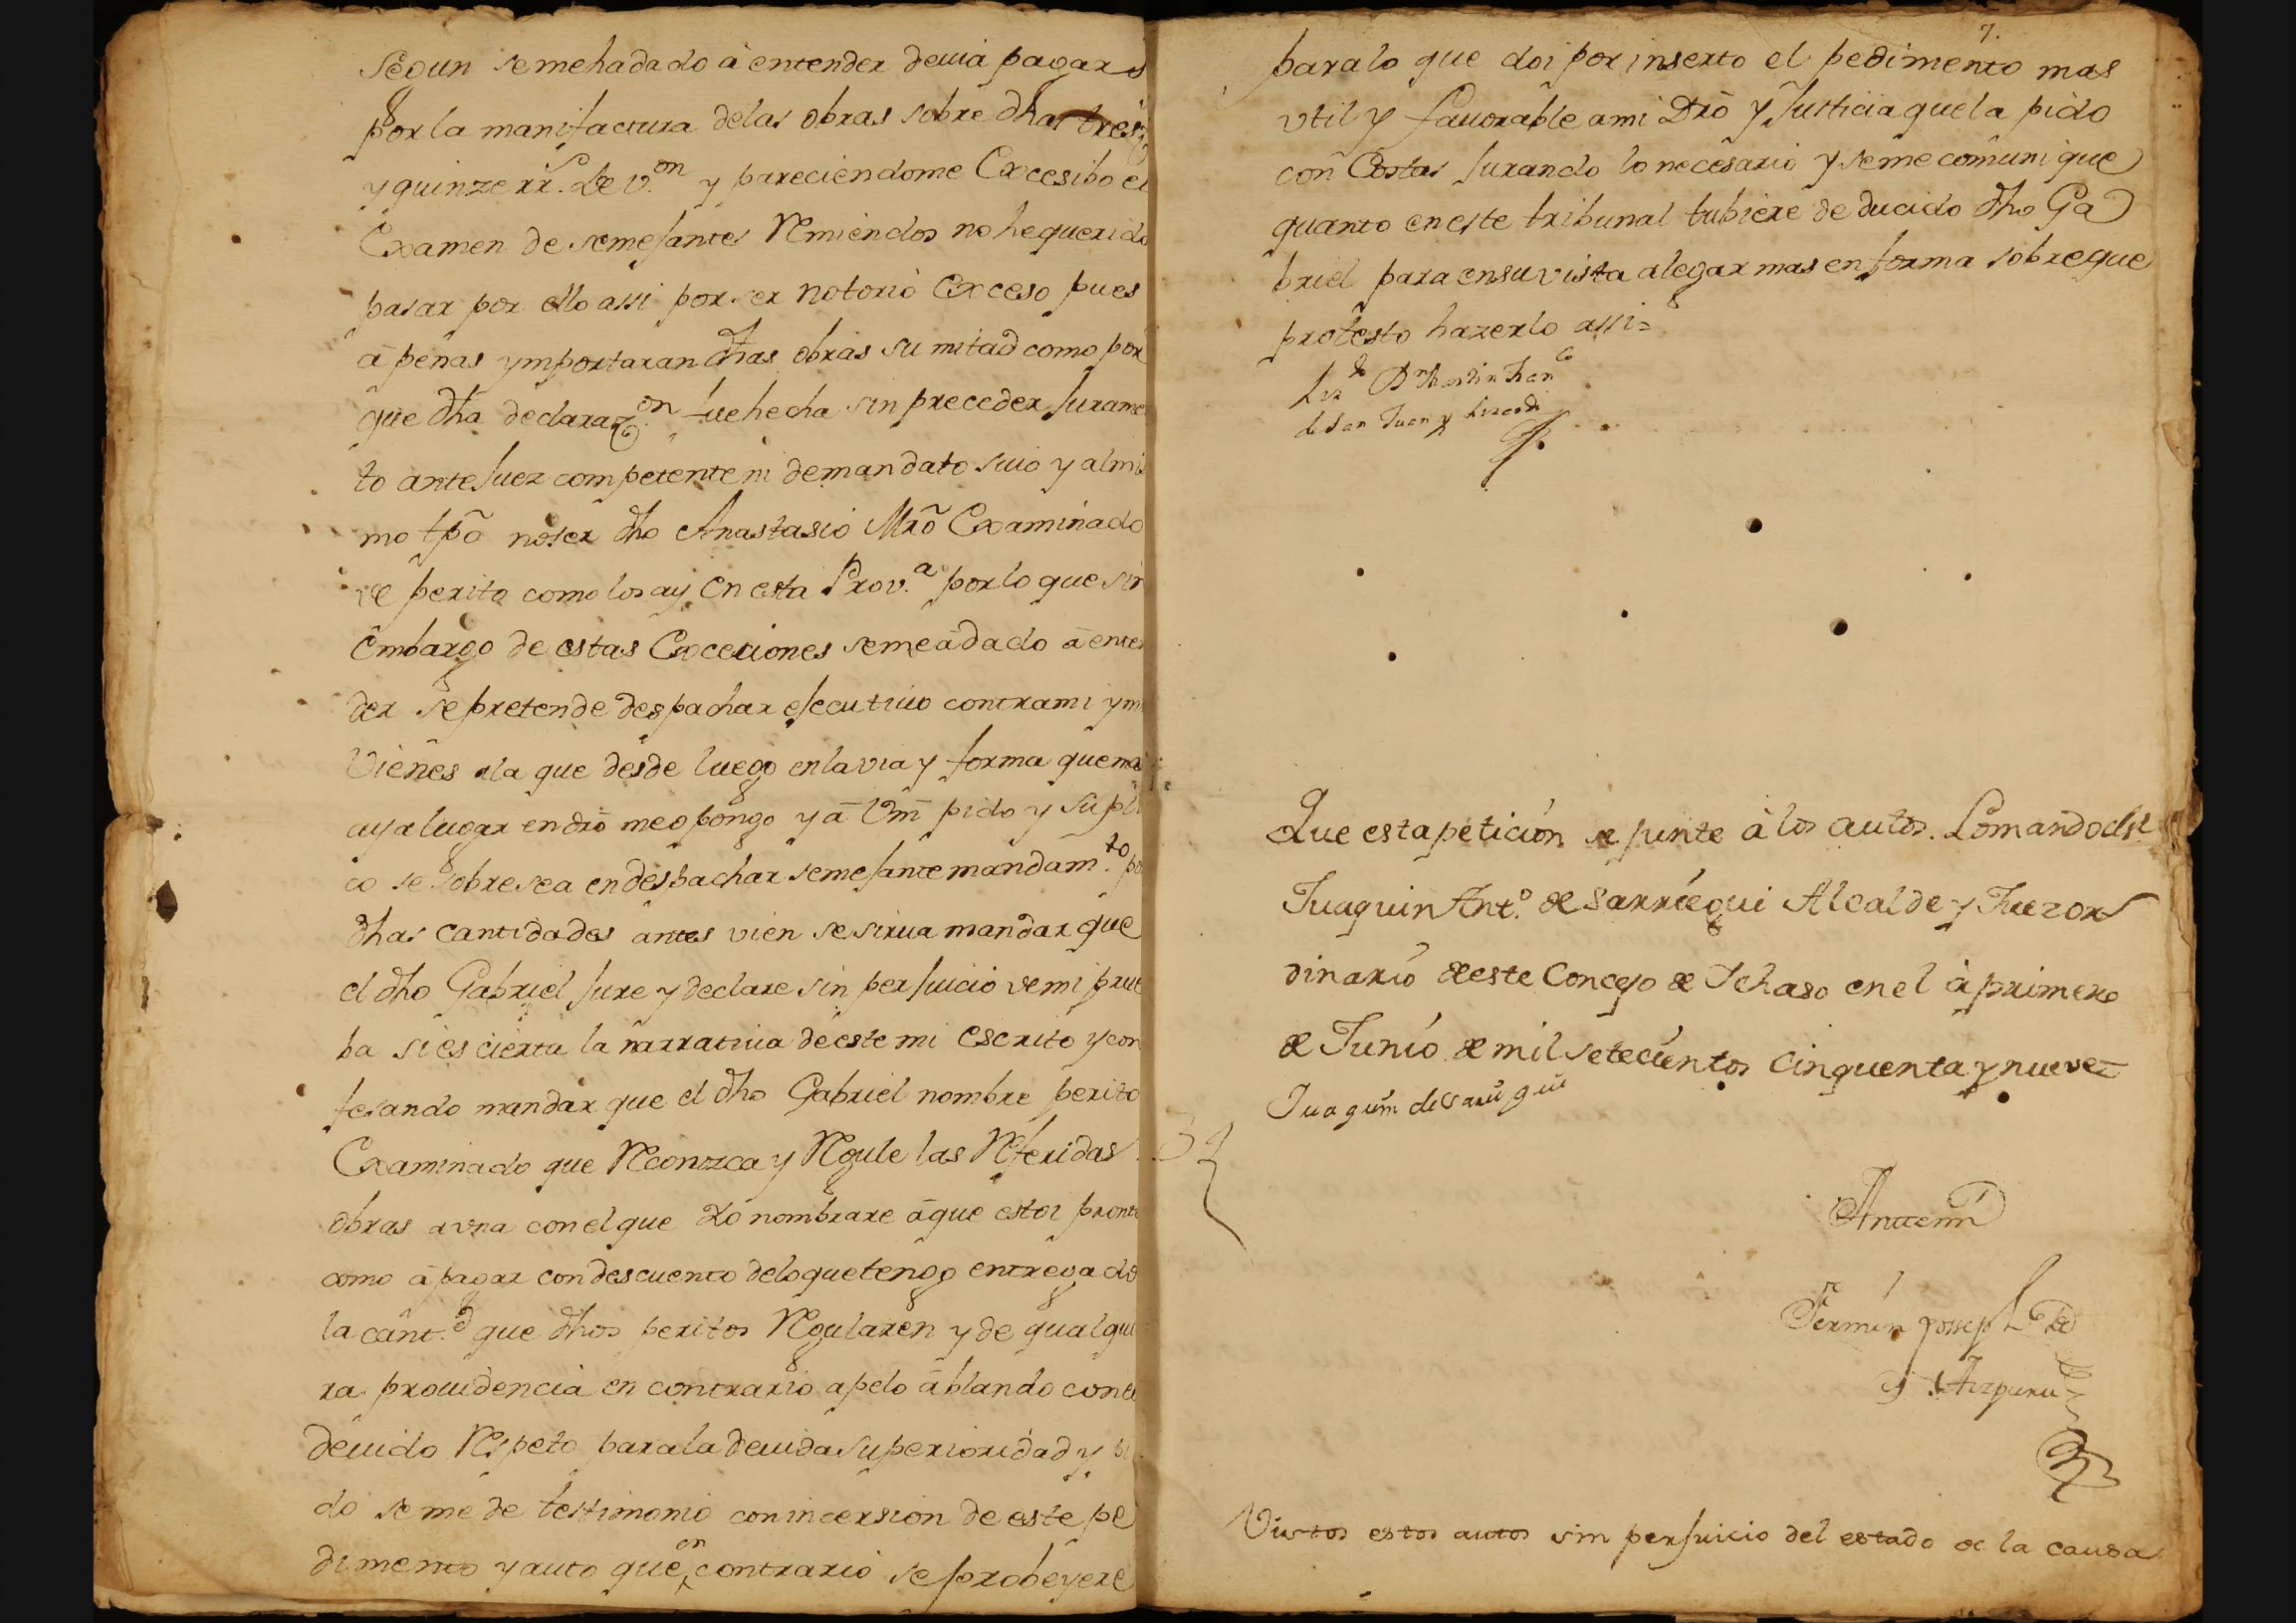 segun semehadado â entender deuia pagar
por la manifactura delas obras sobre dhas tres
y quinze rr.s de v.on y pareciendome Excesibo el
Examen de semejantes Remiendos no he querido
pasar por ello assi por ser notorio Exceso pues
â penas ymportaran dhas obras su mitad como por
que dha declaraz.on fue hecha sin preceder Jurame
to ante Juez competente ni de mandato suio y al mis
mo tpõ no ser dho Anastasio Mrõ Examinado
ve perito como los ay en esta Prov.a por lo que sin
embargo de estas Excecciones semeâdado â enten
der se pretende despachar ejecutiuo contrami y mis
Vienes ala que desde luego enlavia y forma que mas
aya lugar en drõ me opongo y â Vm̃ pido y supli
co se sobresea en despachar semejante mandam.to por
dhas cantidades antes vien se sirua mandar que
el dho Gabriel Jure y declare sin perjuicio ve mi prue
ba si es cierta la narratiua de este mi escrito y con
fesando mandar que el dho Gabriel nombre perito
Examinado que Reconozca y Regule las Referidas
obras a vna con el que Yo nombrare âque estoi pronto
como â pagar con descuento deloquetengo entregado
la cant.d que dhos peritos Regularen y de qualquie
ra prouidencia en contrario apelo âblando con el
deuido Respeto parala deuida superioridad y pi
do se me de testimonio con incersion de este pe
dimento y auto que en contrario se probeyere
7.
para lo que doi por inserto el pedimento mas
vtil y fauorable ami Drõ y Justicia que la pido
con Costas Jurando lo necesario y seme comunique
quanto en este tribunal tubiere deducido dho Ga
briel para ensuvista alegar mas en forma sobreque
protesto hazerlo assi=
de San Juan y
Que estapetición se junte â los autos. Lo mando el S.r
Juaquin Ant.o de Sarriegui Alcalde y Juez or
dinario de este Concejo de Ichaso en el â primero
de Junio de mil setecientos cinquenta y nueve=
Juaquin de Sariegui
Antemi
Fermin Joseph de
Aizpuru
Vistos estos autos sin perjuicio del estado de la causa